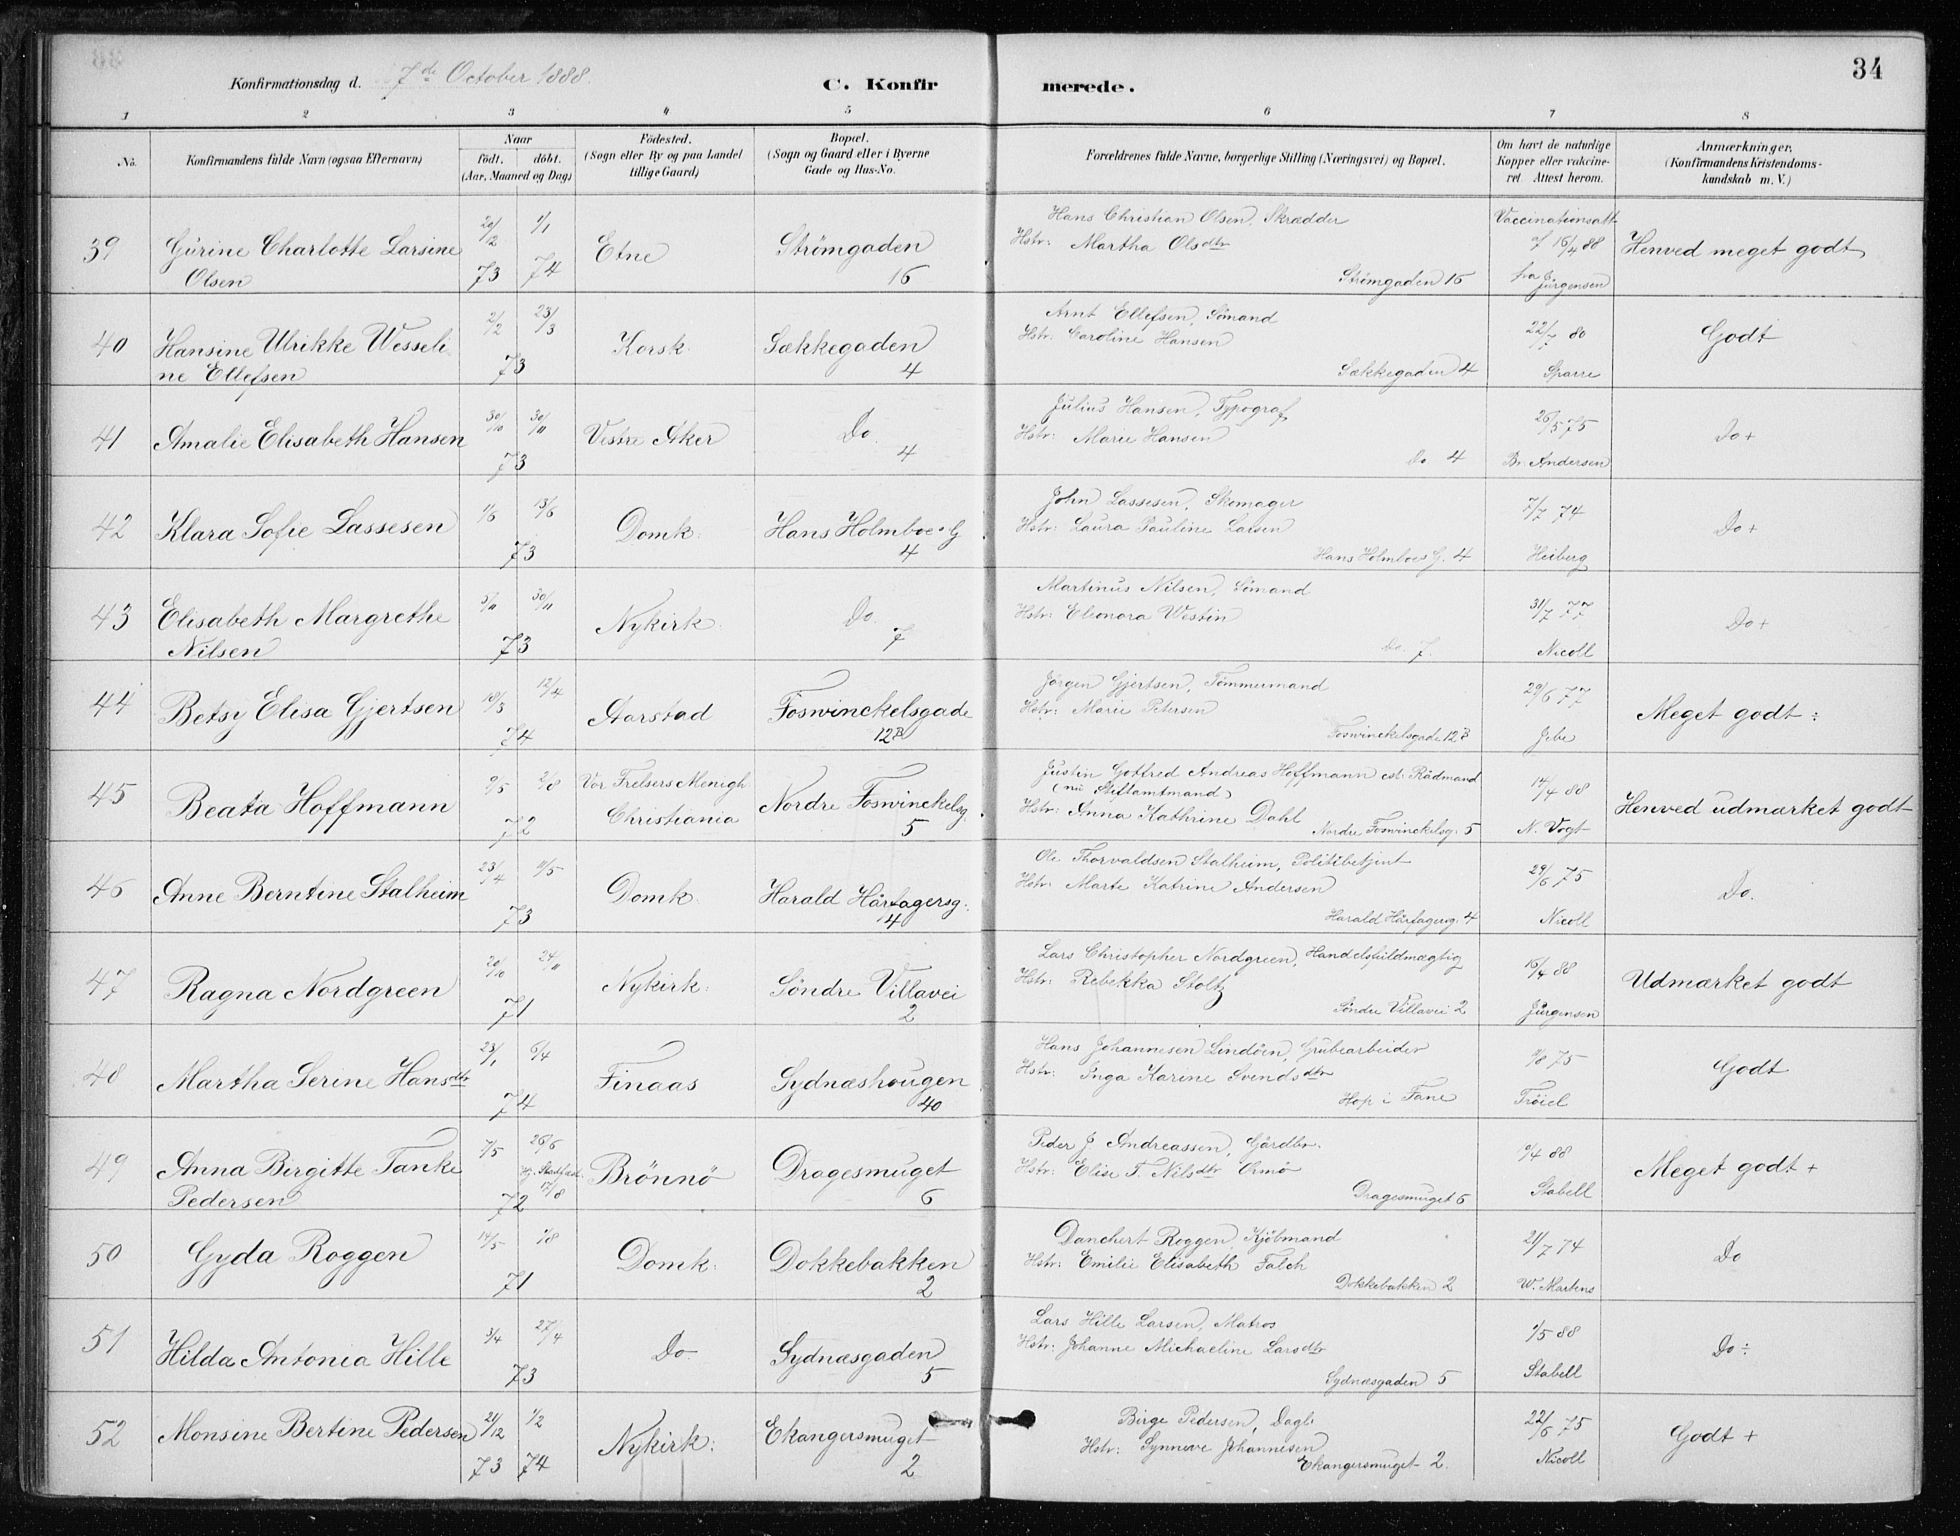 34
Konfirmationsdag d. 7de October 1888.
C. Konfirmerede.
1 2 3 4 5 6 7 8
No.
Konfirmandens fulde Navn (ogsaa Efternavn)
Naar
født. døbt.
(Aar, Maaned og Dag)
Fødested.
(Sogn eller By og paa Landet
tillige Gaard)
Bopæl.
(Sogn og Gaard eller i Byerne
Gade og Hus-No.
Forældrenes fulde Navne, borgerlige Stilling (Næringsvei) og Bopæl.
Om havt de naturlige
Kopper eller vakcine-
ret. Attest herom.
Anmærkninger,
(Konfirmandens Kristendoms-
kundskab m. V.)
39 Gürine Charlotte Larsine 20/12 1/1 Etne Strömgaden Hans Christian Olsen, Skrædder Vaccinationsatt
Olsen 73 74 16 Hstr: Martha Olsdtr af 16/4 88 Henved meget godt
Strömgaden 16 fra Jürgensen
40 Hansine Ulrikke Wesseli 2/2 23/3 Korsk. Sækkegaden Arnt Ellefsen, Sömand 22/7 80 Godt
ne Ellefsen 73 4 Hstr: Caroline Hansen
Sækkegaden 4 Sparre
41 Amalie Elisabeth Hansen 30/10 30/11 Vestre Aker Do. Julius Hansen, Typograf 26/5 75 Do +
73 4 Hstr: Marie Hansen
Do 4 Br. Andersen
42 Klara Sofie Lassesen 1/6 13/6 Domk: Hans Holmboes G John Lassesen, Skomager 7/7 74 Do +
73 4 Hstr: Laura Pauline Larsen
Hans Holmboes G. 4 Heiberg
43 Elisabeth Margrethe 5/11 30/11 Nykirk. Do. Martinus Nilsen, Sömand 31/7 77 Do +
Nilsen 73 7 Hstr: Eleonora Westin
Do. 7. Nicoll
44 Betsy Elisa Gjertsen 18/3 12/4 Aarstad Foswinckelsgade Jörgen Gjertsen, Tömmermand 29/6 77 Meget godt ÷
74 12B Hstr: Marie Petersen
Foswinckelsgade 12B Jebe
45 Beata Hoffmann 9/5 2/8 Vor Frelsers Menigh. Nordre Foswinckelsg. Justin Gotfred Andreas Hoffmann cst. Rådmand 14/4 88 Henved udmærket godt
72 Christiania 5 (nu Stiftamtmand)
Hstr: Anna Kathrine Dahl
Nordre Foswinckelsg. 5 N. Vogt
46 Anne Berntine Stalheim 23/4 11/5 Domk. Harald Hårfagersg. Ole Thorvaldsen Stalheim, Politibetjent 29/6 75 Do.
73 4 Hstr: Marte Katrine Andersen
Harald Hårfagersg. 4 Nicoll
47 Ragna Nordgreen 20/10 24/11 Nykirk: Söndre Villavei Lars Christopher Nordgreen, Handelsfuldmægtig 16/4 88 Udmærket godt
71 2 Hstr: Rebekka Stoltz
Söndre Villavei 2 Jürgensen
48 Martha Serine Hansdtr 23/1 6/4 Finaas Sydnæshougen Hans Johannesen Lindöen, Grubearbeider 9/8 75 Godt
74 40 Hstr: Inga Karine Svendsdtr
Hop i Fane Tröiel
49 Anna Birgitte Tanke 7/5 26/6 Brönnö Dragesmuget Peder J Andreassen, Gårdbr. 9/4 88 Meget godt +
Pedersen 72 17/8 6 Hstr: Elise T. Nilsdtr Ormö
Dragesmuget 6 Stabell
50 Gyda Roggen 14/5 1/8 Domk: Dokkebakken Danchert Roggen, Kjöbmand 21/7 74 Do
71 2 Hstr: Emilie Elisabeth Falch
Dokkebakken 2 W. Martens
51 Hilda Antonia Hille 3/4 27/4 Do Sydnæsgaden Lars Hille Larsen, Matros 1/5 88 Do ÷
73 5 Hstr: Johanne Michaeline Larsdtr
Sydnæsgaden 5 Stabell
52 Monsine Bertine Pedersen 21/12 1/2 Nykirk: Ekangersmuget Birge Pedersen, Dagl. 22/6 75 Godt +
73 74 2 Hstr: Synneve Johannesen
Ekangersmuget 2. Nicoll